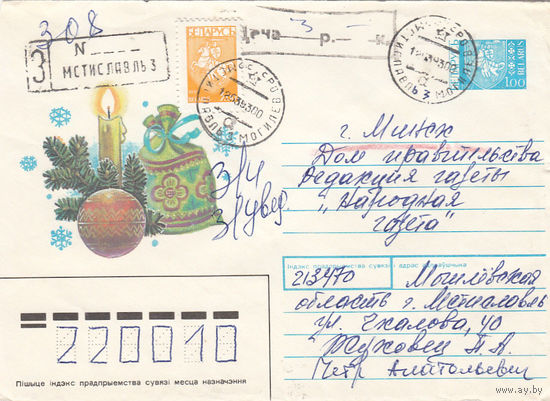 308
З N
МСТИСЛАВЛЬ 3
БЕЛАРУСЬ
Цена 3 р. к.
БЕЛАРУСЬ
1.00
BELARUS
г. Минск
Дом правительства
Редакция газеты
"Народная
газета"
З/ч
З/увед
Індэкс прадпрыемства сувязі і адрас адпраўшчыка
213470 Могилёвская
область г. Мстиславль
ул. Чкалова, 40
Жуховец П. А.
Пётр Анатольевич
220010
Пішыце індэкс прадпрыемства сувязі месца назначэння
www.ay.by